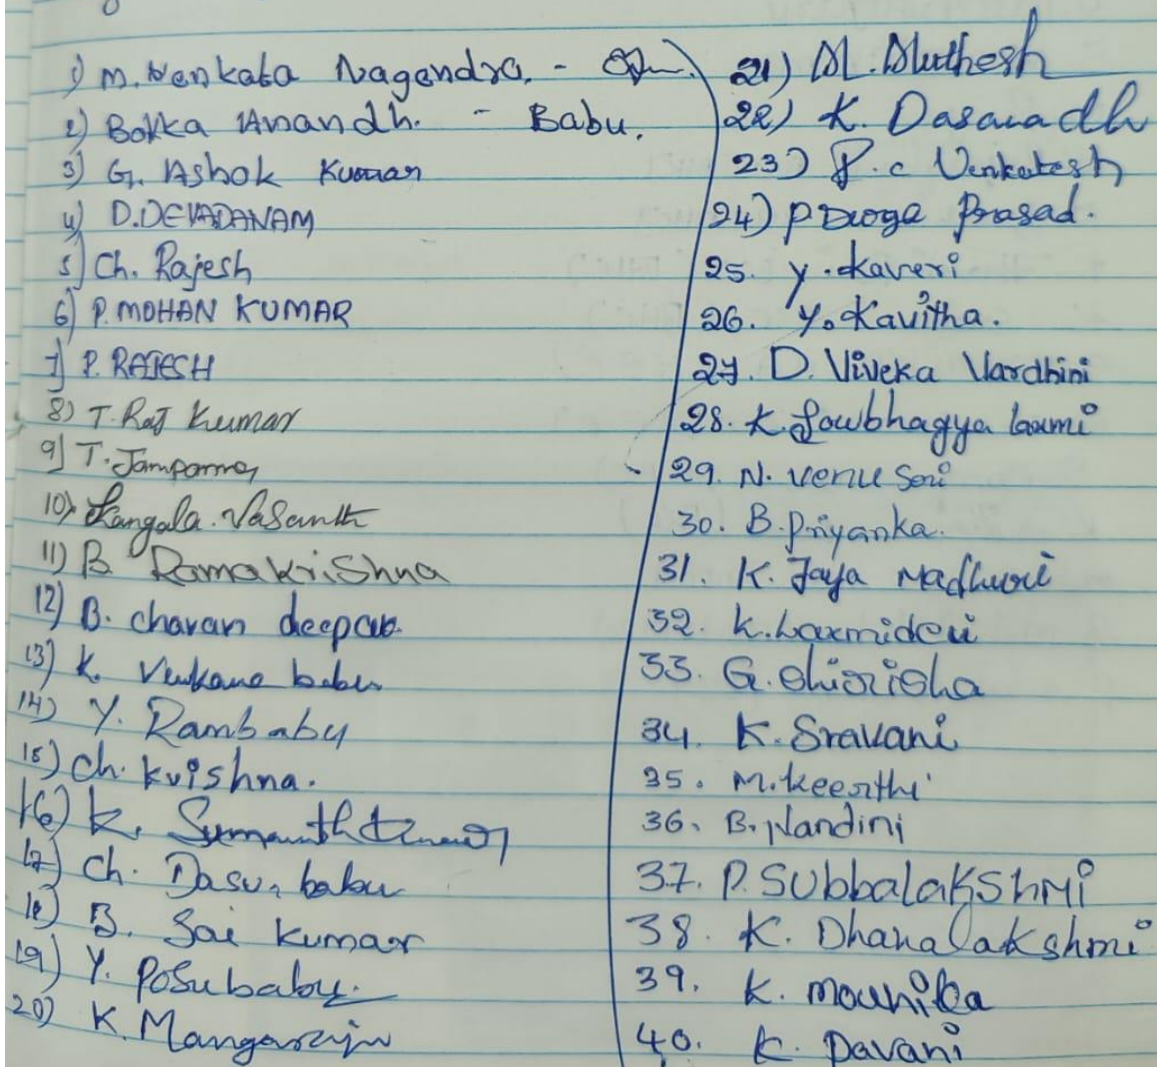 1) M. Venkata Nagendra. -
2) Bokka Anandh. - Babu.
3) G. Ashok Kumar
4) D. DEVADANAM
5) Ch. Rajesh
6) P. MOHAN KUMAR
7) P. RAJESH
8) T. Raj Kumar
9) T.
10) Vasanth
11) B Ramakrishna
12) B. charan deepak
13) K. Venkana babu
14) Y. Rambabu
15) Ch. Krishna.
16) K. Sumanth
17) Ch. Dasu, babu
18) B. Sai Kumar
19) Y. Posubabu.
20) K. Mangaraju
21) M. Muthesh
22) K. Dasaradh
23) P. C Venkatesh
24) P Durga Prasad.
25. Y. Kaveri
26. Y. Kavitha.
27. D. Viveka Vardhini
28. K. Sowbhagya laxmi
29. N. Venu Sri
30. B. Priyanka.
31. K. Jaya Madhuri
32. K. Laxmidevi
33. G. Shirisha
34. K. Sravani
35. M. Keerthi
36. B. Nandini
37. P. Subbalakshmi
38. K. Dhanalakshmi
39. K. mounika
40. K. Pavani